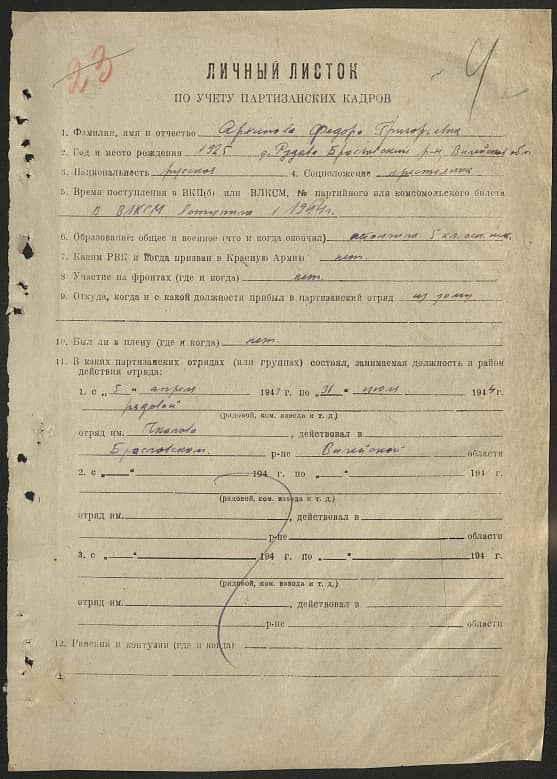 23
4
ЛИЧНЫЙ ЛИСТОК
ПО УЧЕТУ ПАРТИЗАНСКИХ КАДРОВ
1. Фамилия, имя и отчество Архипова Федора Григорьевна
2. Год и место рождения 1925 д. Рудава Браславский р-н, Вилейской обл.
3. Национальность русская 4. Соцположение крестьянка
5. Время поступления в ВКП(б) или ВЛКСМ, № партийного или комсомольского билета
В ВЛКСМ вступила в 1944 г.
6. Образование: общее и военное (что и когда окончил) окончила 5 кл.
7. Каким РВК и когда призван в Красную Армию нет.
8. Участие на фронтах (где и когда) нет.
9. Откуда, когда и с какой должности прибыл в партизанский отряд из дому
10. Был ли в плену (где и когда) нет.
11. В каких партизанских отрядах (или группах) состоял, занимаемая должность и район
действия отряда:
1. с „ 5 “ апреля 194 г. по „ 31 “ июля 1944 г.
рядовой
(рядовой, ком. взвода и т. д.)
отряд им. Чкалова, действовал в
Браславском р-не Вилейской области
2. с „ “ 194 г. по „ “ 194 г.
(рядовой, ком. взвода и т. д.)
отряд им. , действовал в
р-не области
3. с „ “ 194 г. по „ “ 194 г.
(рядовой, ком. взвода и т. д.)
отряд им. , действовал в
р-не области
12. Ранения и контузии (где и когда)